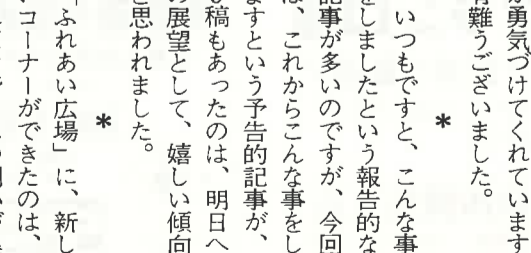 勇気づけてくれています
難うございました。
＊
いつもですと、こんな事
をしましたという報告的な
記事が多いのですが、今回
は、これからこんな事をし
ますという予告的記事が、
稿もあったのは、明日へ
の展望として、嬉しい傾向
と思われました。
＊
「ふれあい広場」に、新し
いコーナーができたのは、